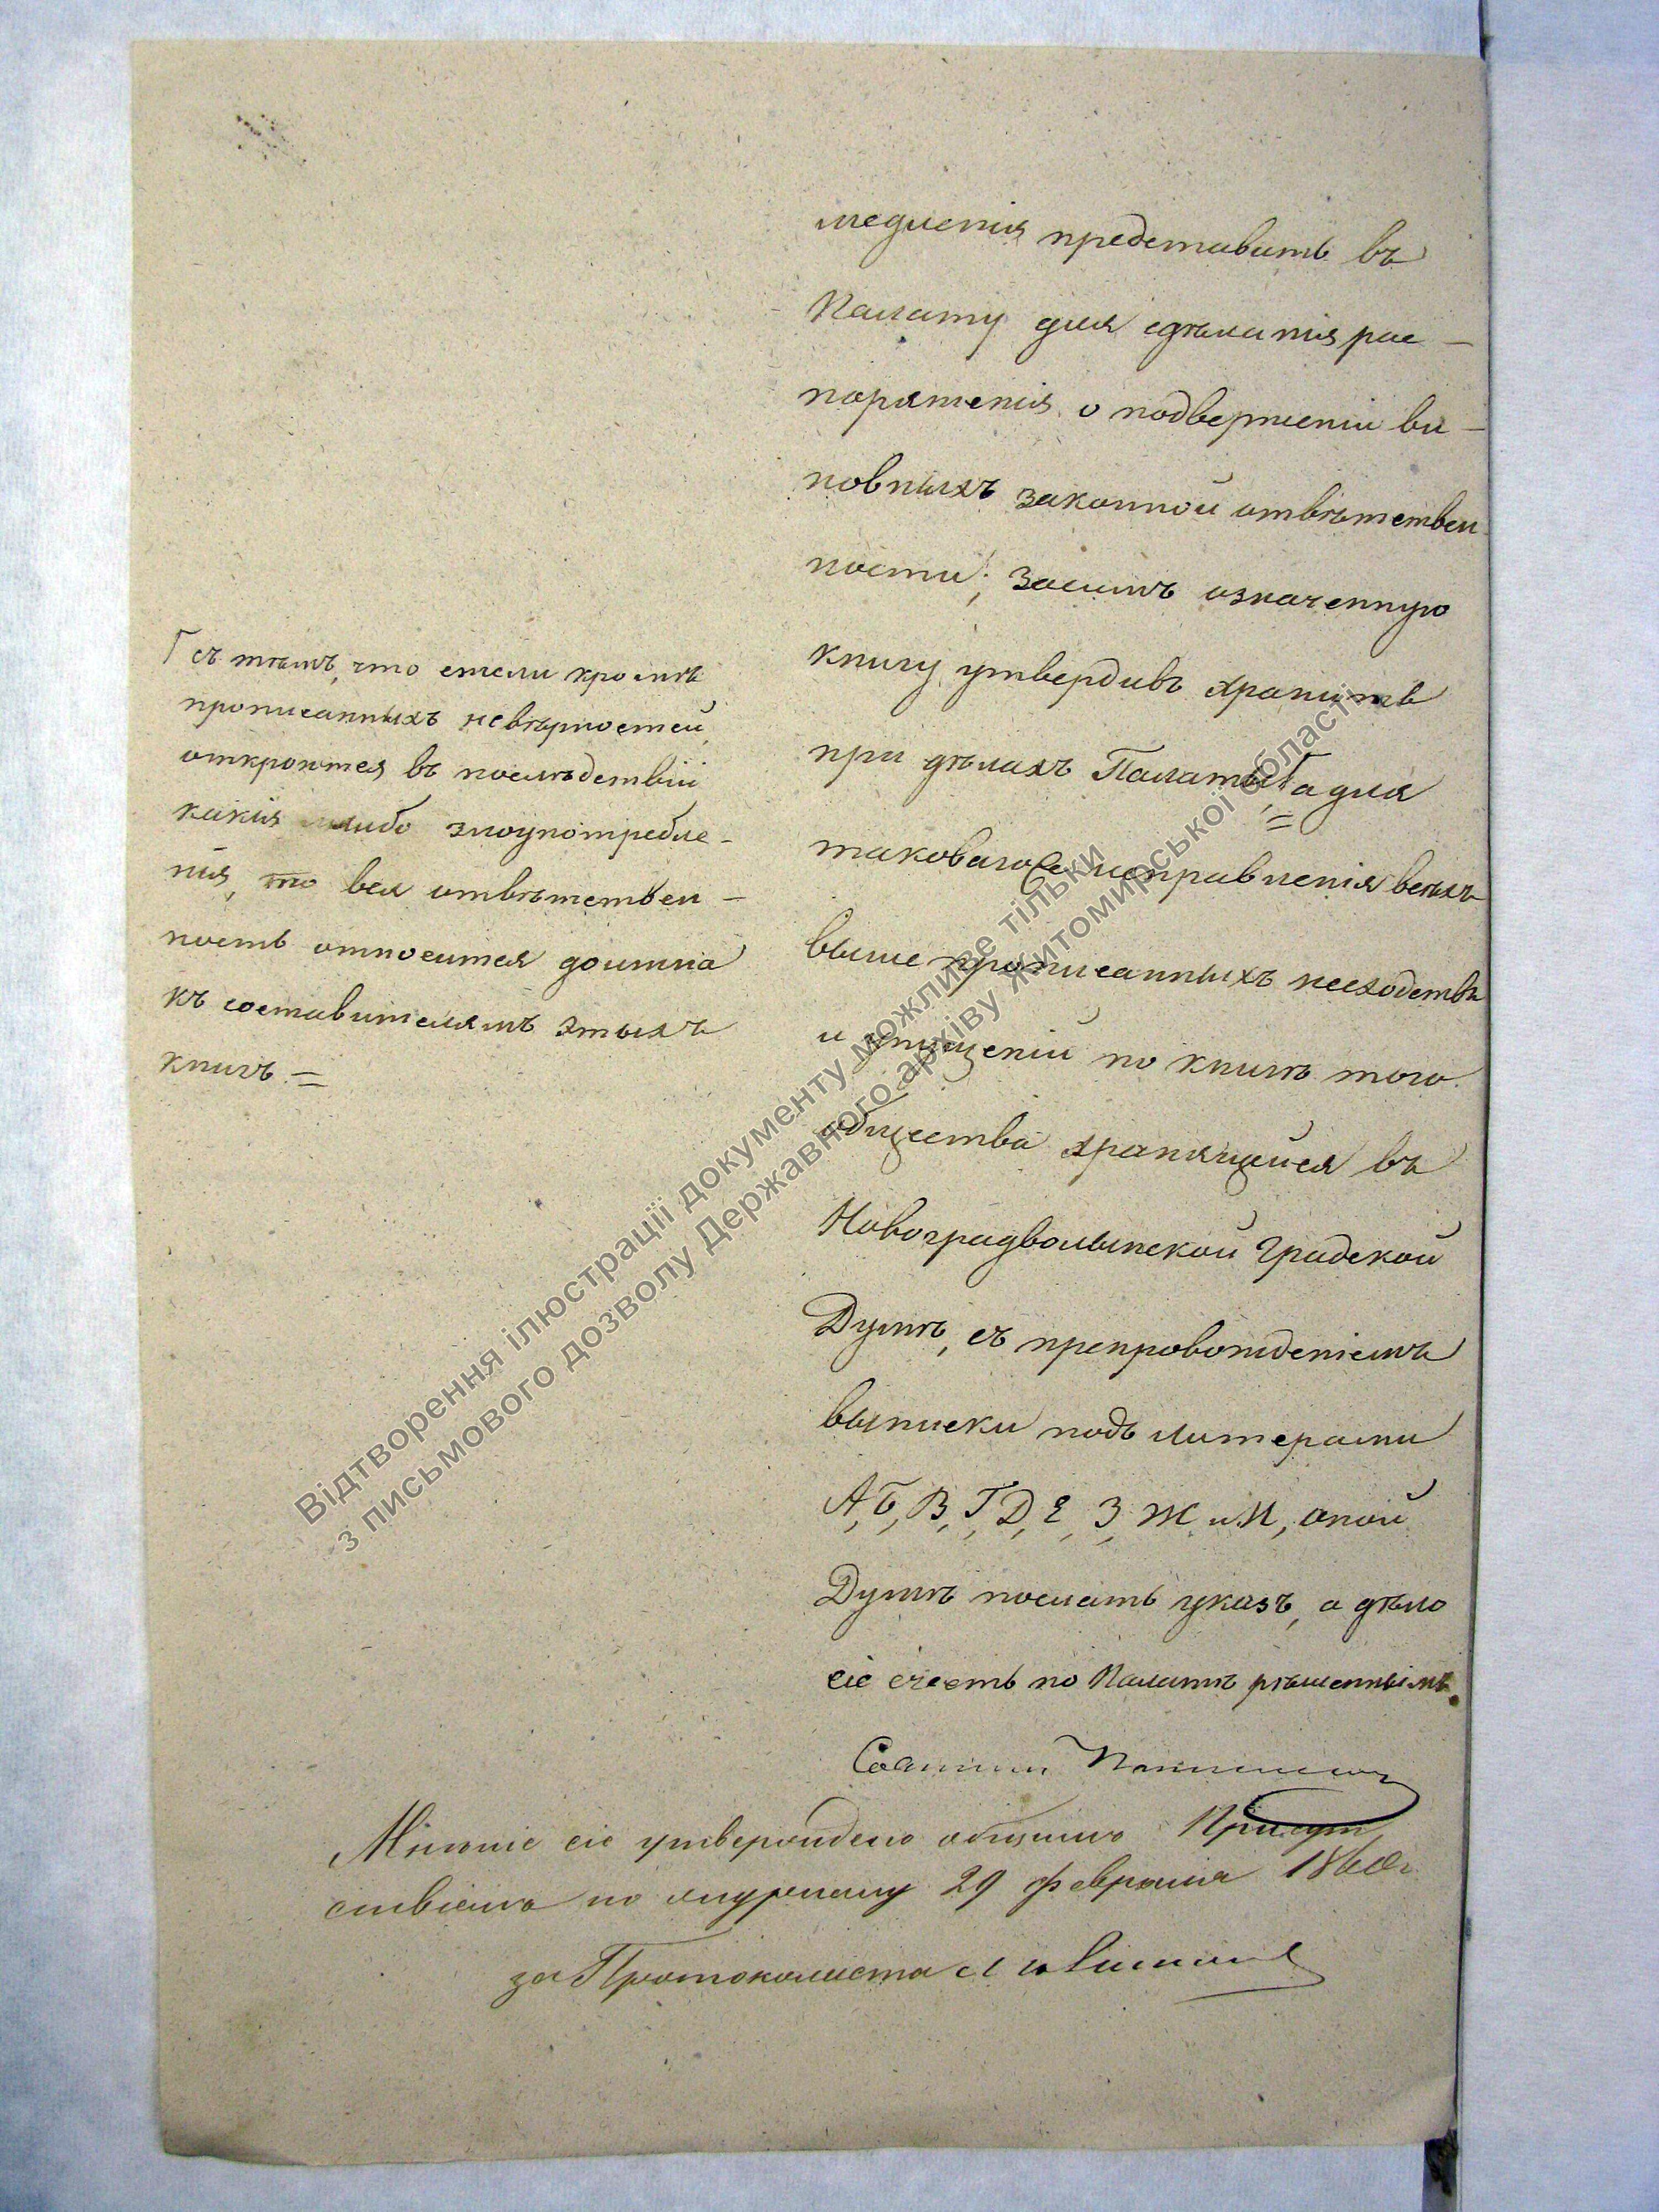 медленія представить въ
Палату для сдѣланія рас-
поряженія о подверженіи ви-
новныхъ законной отвѣтствен
ности; Засимъ означенную
книгу утвердивъ хранить
при дѣлахъ Палаты, а для
таковаго исправленія всѣхъ
выше прописанныхъ несходствъ
и упущеній по книгѣ того
общества хранящейся въ
Новоградволынской Градской
Думѣ, съ препровожденіемъ
выписки подъ литерами
А, Б, В, Г, Д, Е, З, Ж и И, оной
Думѣ послать указъ, а дѣло
сіе счесть по Палатѣ рѣшеннымъ.
Г съ тѣмъ, что ежели кромѣ
прописанныхъ невѣрностей,
откроются въ послѣдствіи
какія либо злоупотребле-
нія, то вся отвѣтствен-
ность относится должна
къ составителямъ этыхъ
книгъ =
Мнѣніе сіе утверждено общимъ Присут
ствіемъ по журналу 29 февраля 1860 г
за Протоколиста
Відтворення ілюстрації документу можливе тільки
з письмового дозволу Державного архіву Житомирської області